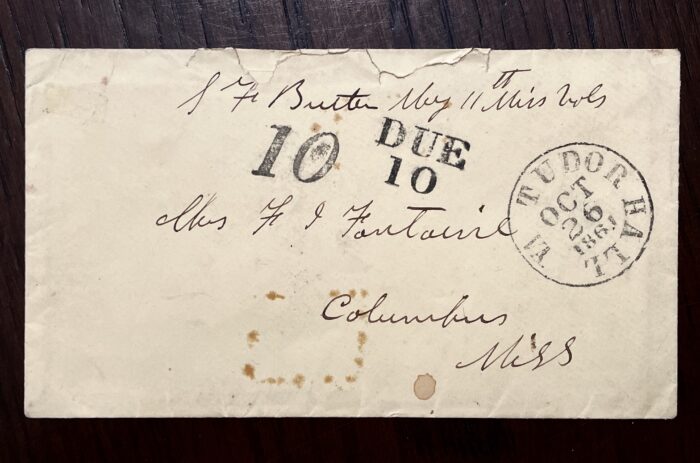 S F Butler Maj 11th Miss Vols
10
DUE
10
TUDOR HALL Va
OCT
26
1861
Mrs F J Fontaine
Columbus
Miss